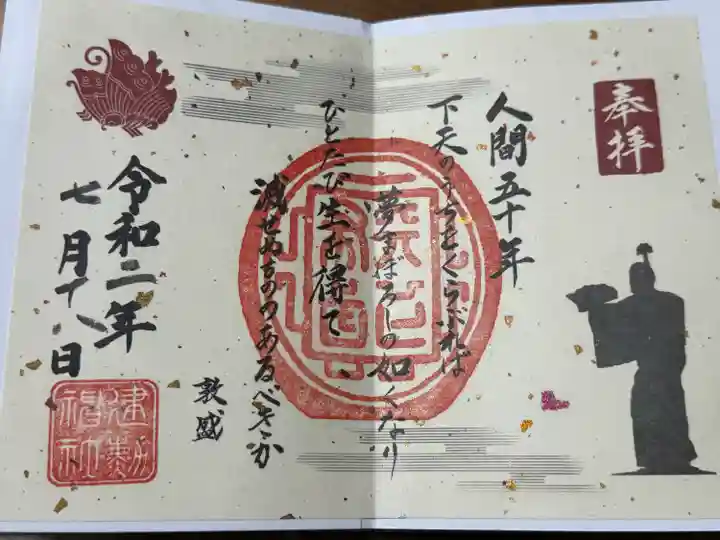 奉拝
人間五十年
下天のうちをくらぶれば
夢まぼろしの如くなり
ひとたび生を得て
滅せぬもののあるべきか
敦盛
令和二年
七月十八日
建勲
神社